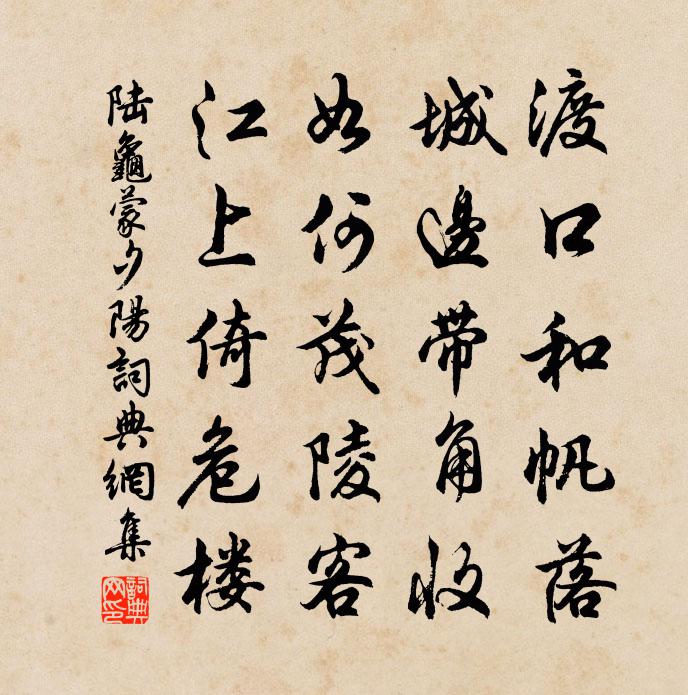 渡口和帆落
城邊带角收
如何茂陵客
江上倚危楼
陆龜蒙夕陽詞典網集
詞典网印